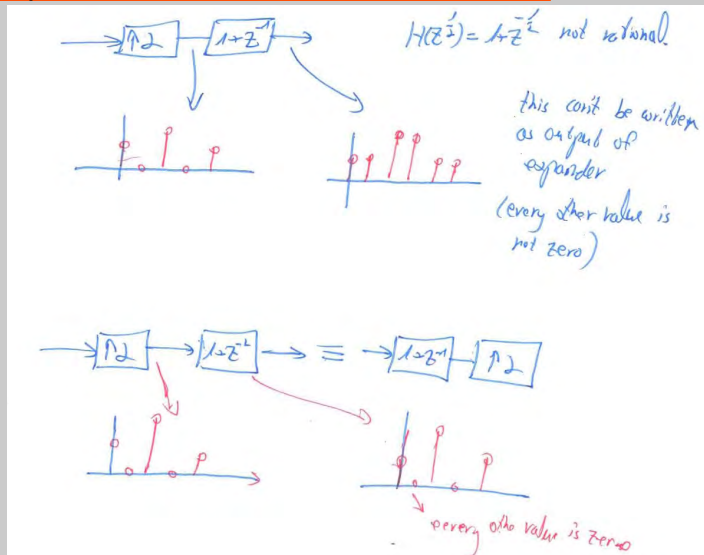 ↑2
1+z⁻¹
H(z^½) = 1+z^-½ not rational.
this can't be written
as output of
expander
(every other value is
not zero)
↑2
1+z⁻²
≡
1+z⁻¹
↑2
every othe value is zero